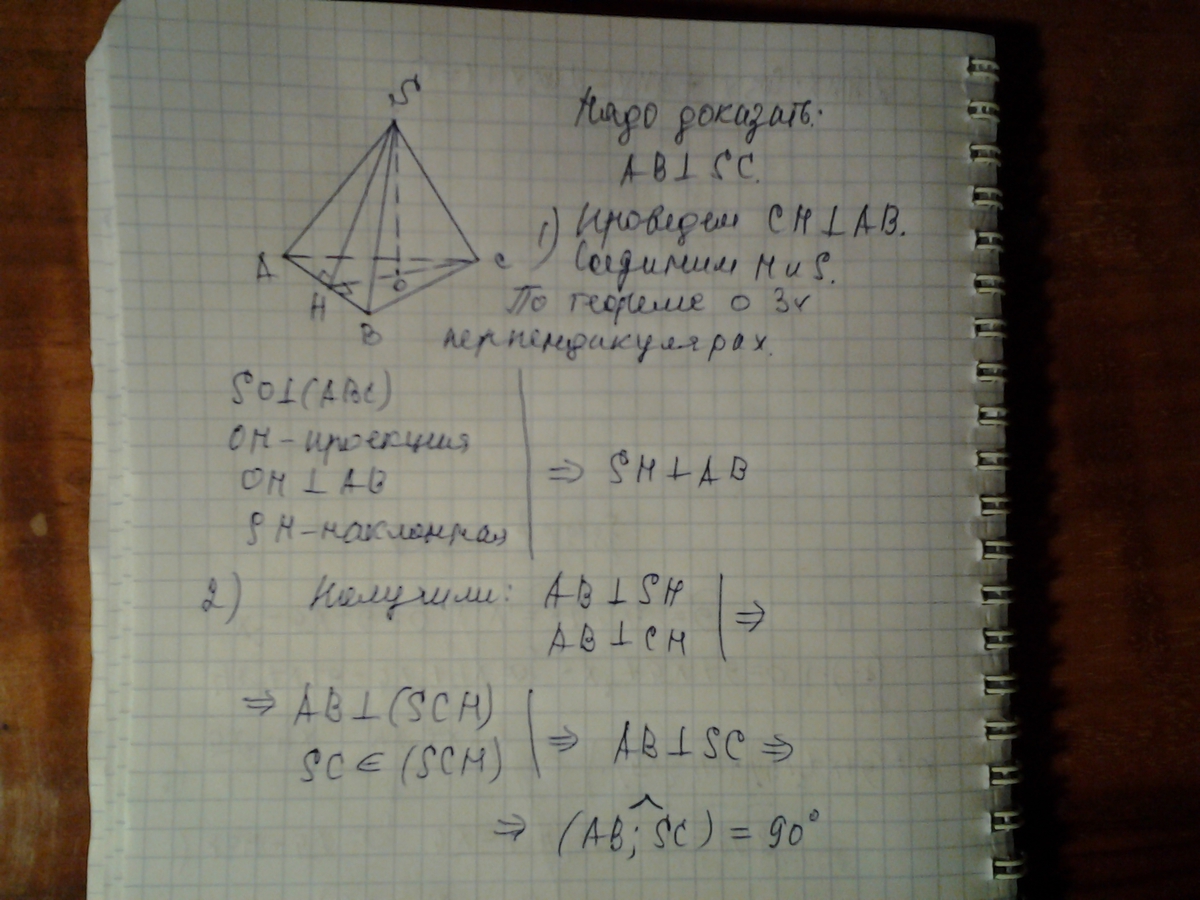 S
A
H
B
O
C
Надо доказать:
AB⊥SC.
1) Проведем CH⊥AB.
Соединим H и S.
По теореме о 3х
перпендикулярах.
SO⊥(ABC)
OH-проекция
OH⊥AB
SH-наклонная
⇒ SH⊥AB
2) Получили: AB⊥SH
AB⊥CH
⇒
⇒ AB⊥(SCH)
SC∈(SCH)
⇒ AB⊥SC ⇒
⇒ (AB;^SC) = 90°